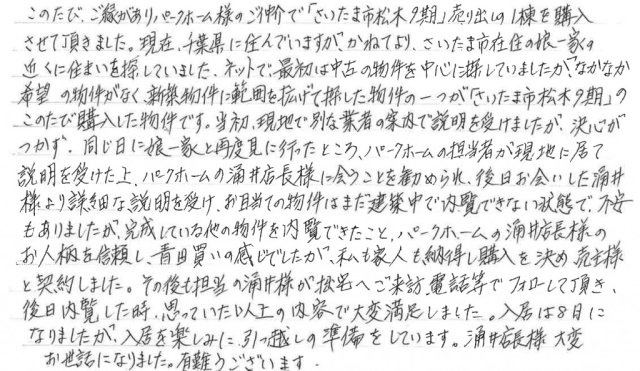 このたび、ご縁がありパークホーム様のご仲介で「さいたま市松木9期」売り出しの1棟を購入
させて頂きました。現在、千葉県に住んでいますが、かねてより、さいたま市在住の娘一家の
近くに住まいを探していました。ネットで最初は中古の物件を中心に探していましたが、なかなか
希望の物件がなく、新築物件に範囲を拡げて探した物件の一つが「さいたま市松木9期」の
このたび購入した物件です。当初、現地で別な業者の案内で説明を受けましたが、決心が
つかず、同じ日に娘一家と再度見に行ったところ、パークホームの担当者が現地に居て
説明を受けた上、パークホームの涌井店長様に会うことを勧められ、後日お会いした涌井
様より詳細な説明を受け、お目当ての物件はまだ建築中で内覧できない状態で、不安
もありましたが、完成している他の物件を内覧できたこと、パークホームの涌井店長様の
お人柄を信頼し、青田買いの感じでしたが、私も家人も納得し購入を決め、売主様
と契約しました。その後も担当の涌井様が拙宅へご来訪、電話等でフォローして頂き、
後日内覧した時、思っていた以上の内容で大変満足しました。入居は8月に
なりましたが、入居を楽しみに引っ越しの準備をしています。涌井店長様 大変
お世話になりました。有難うございます.